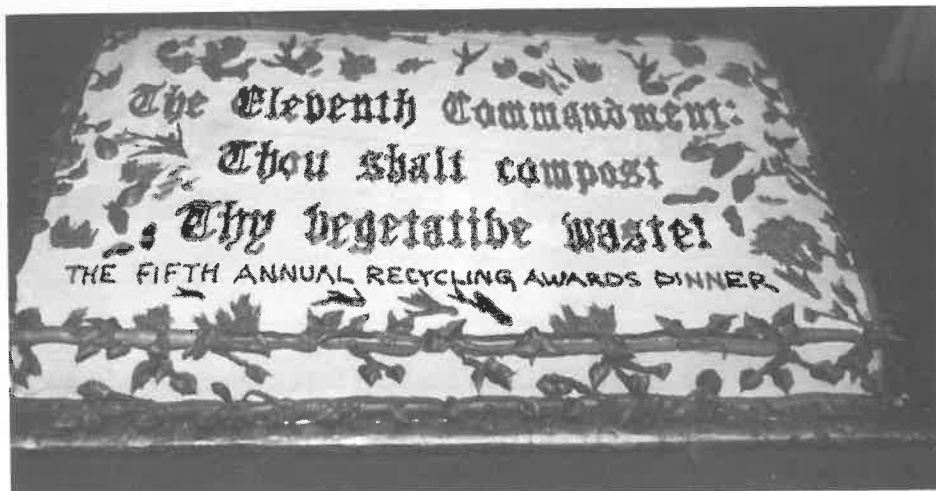 The Eleventh Commandment:
Thou shalt compost
Thy vegetative waste!
THE FIFTH ANNUAL RECYCLING AWARDS DINNER